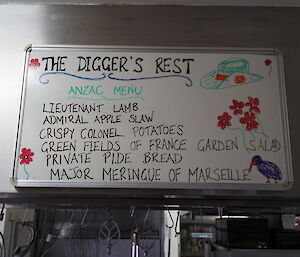 THE DIGGER'S REST
ANZAC MENU
LIEUTENANT LAMB
ADMIRAL APPLE SLAW
CRISPY COLONEL POTATOES
GREEN FIELDS OF FRANCE GARDEN SALAD
PRIVATE PIDE BREAD
MAJOR MERINGUE OF MARSEILLE